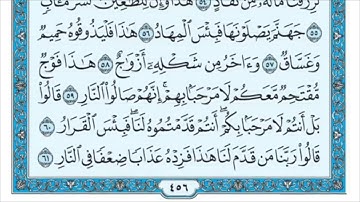 لَرِزْقُنَا مَا لَهُ مِن نَّفَادٍ ٥٤ هَٰذَا وَإِنَّ لِلطَّاغِينَ لَشَرَّ مَـَٔابٍ
٥٥ جَهَنَّمَ يَصْلَوْنَهَا فَبِئْسَ ٱلْمِهَادُ ٥٦ هَٰذَا فَلْيَذُوقُوهُ حَمِيمٌ
وَغَسَّاقٌ ٥٧ وَءَاخَرُ مِن شَكْلِهِۦٓ أَزْوَٰجٌ ٥٨ هَٰذَا فَوْجٌ
مُّقْتَحِمٌ مَّعَكُمْ لَا مَرْحَبًۢا بِهِمْ إِنَّهُمْ صَالُوا۟ ٱلنَّارِ ٥٩ قَالُوا۟
بَلْ أَنتُمْ لَا مَرْحَبًۢا بِكُمْ أَنتُمْ قَدَّمْتُمُوهُ لَنَا فَبِئْسَ ٱلْقَرَارُ ٦٠
قَالُوا۟ رَبَّنَا مَن قَدَّمَ لَنَا هَٰذَا فَزِدْهُ عَذَابًا ضِعْفًا فِى ٱلنَّارِ ٦١
٤٥٦